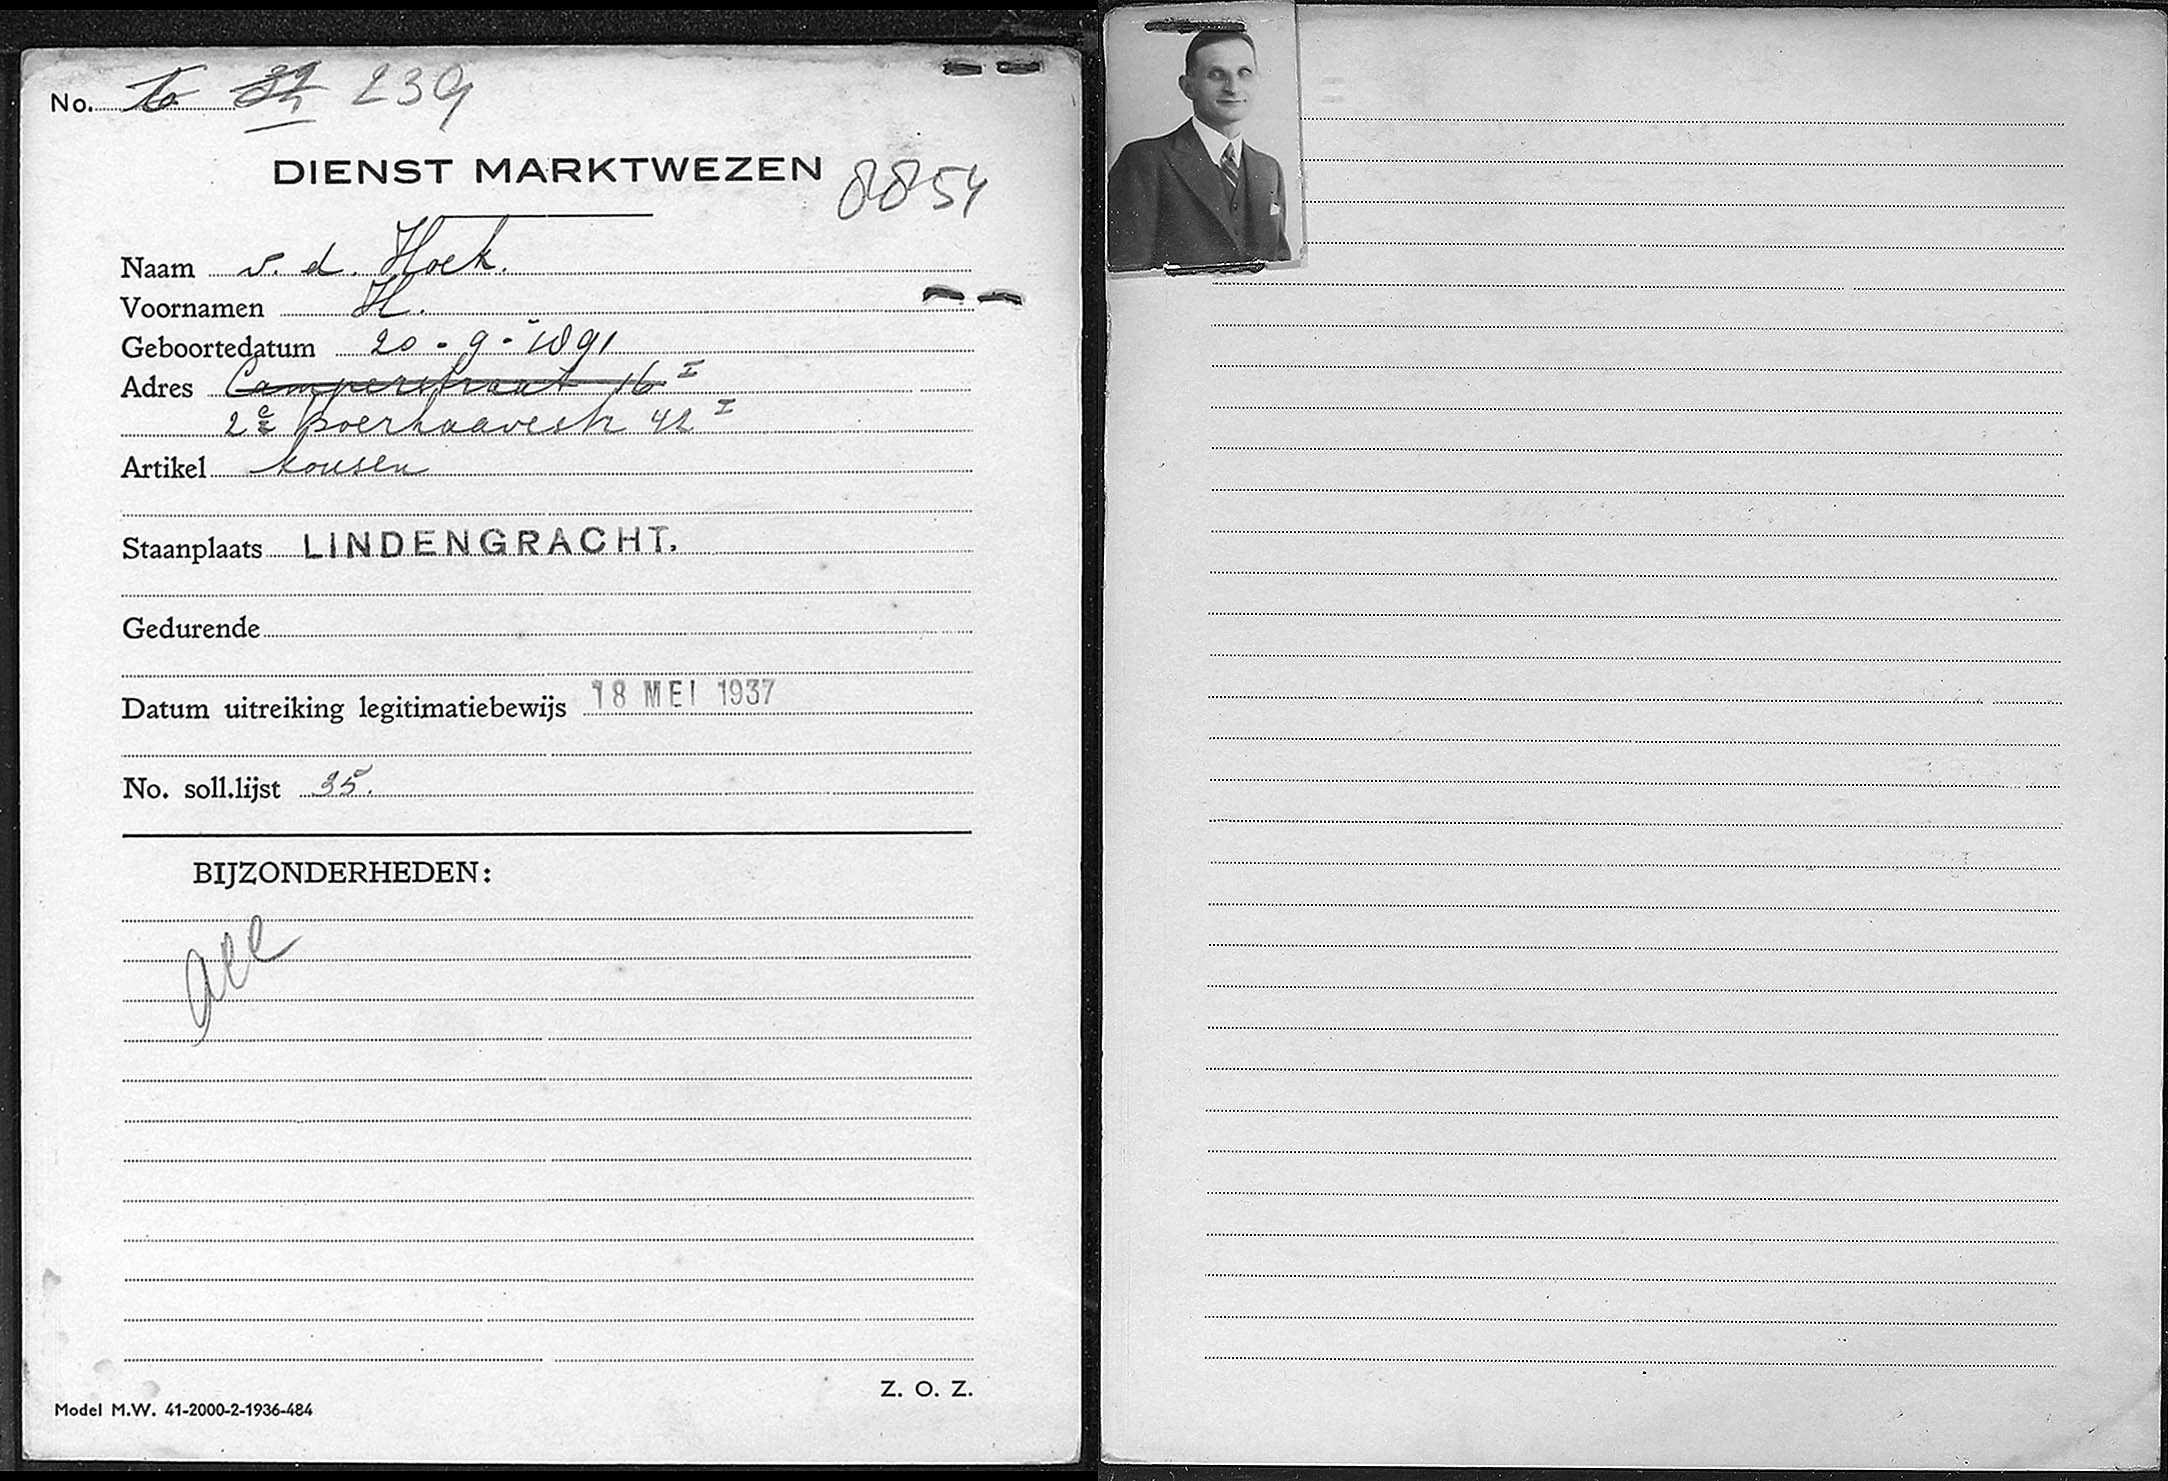 No. 239
DIENST MARKTWEZEN
8854
Naam v. d. Hoek.
Voornamen H.
Geboortedatum 20-9-1891
Adres Camperstraat 16 I
2e Boerhaavestr 42 I
Artikel kousen
Staanplaats LINDENGRACHT.
Gedurende
Datum uitreiking legitimatiebewijs 18 MEI 1937
No. soll.lijst 35.
BIJZONDERHEDEN:
Z. O. Z.
Model M.W. 41-2000-2-1936-484